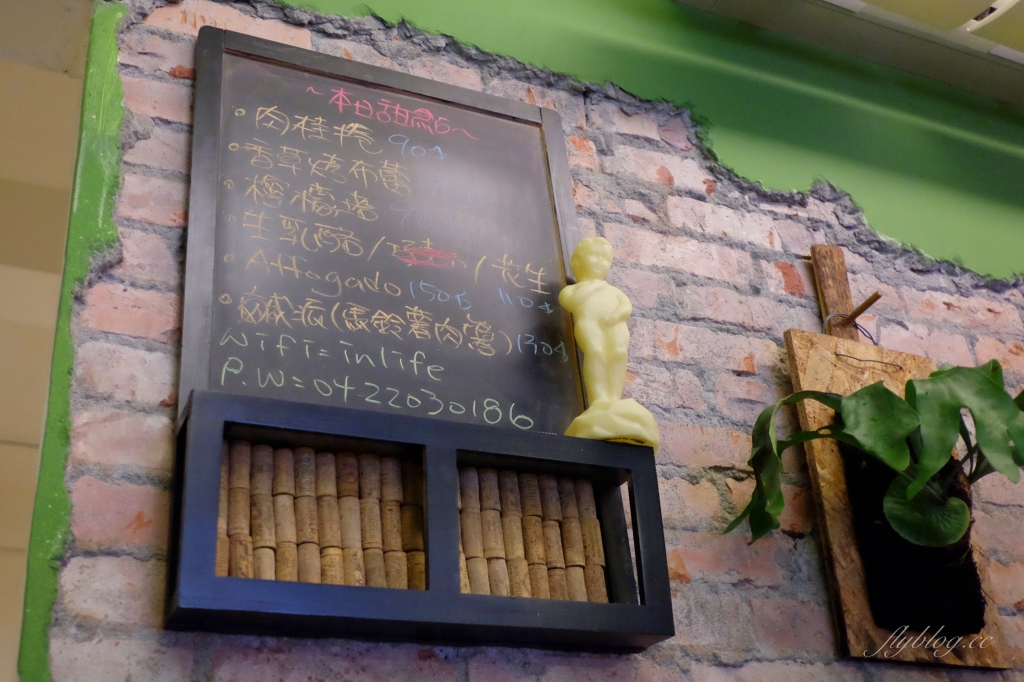 ~本日甜点~
。肉桂捲 90元
。香草烤布蕾
。檸檬塔 90元
。生乳酪/ /花生
。Affogado 150元 110元
。鹹派(馬鈴薯肉醬)130元
wifi=inlife
P.W=0422030186
flyblog.cc